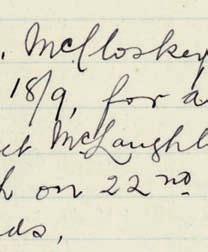 . McCloskey
18/9, for a
et McLaughl
h on 22nd
ds,